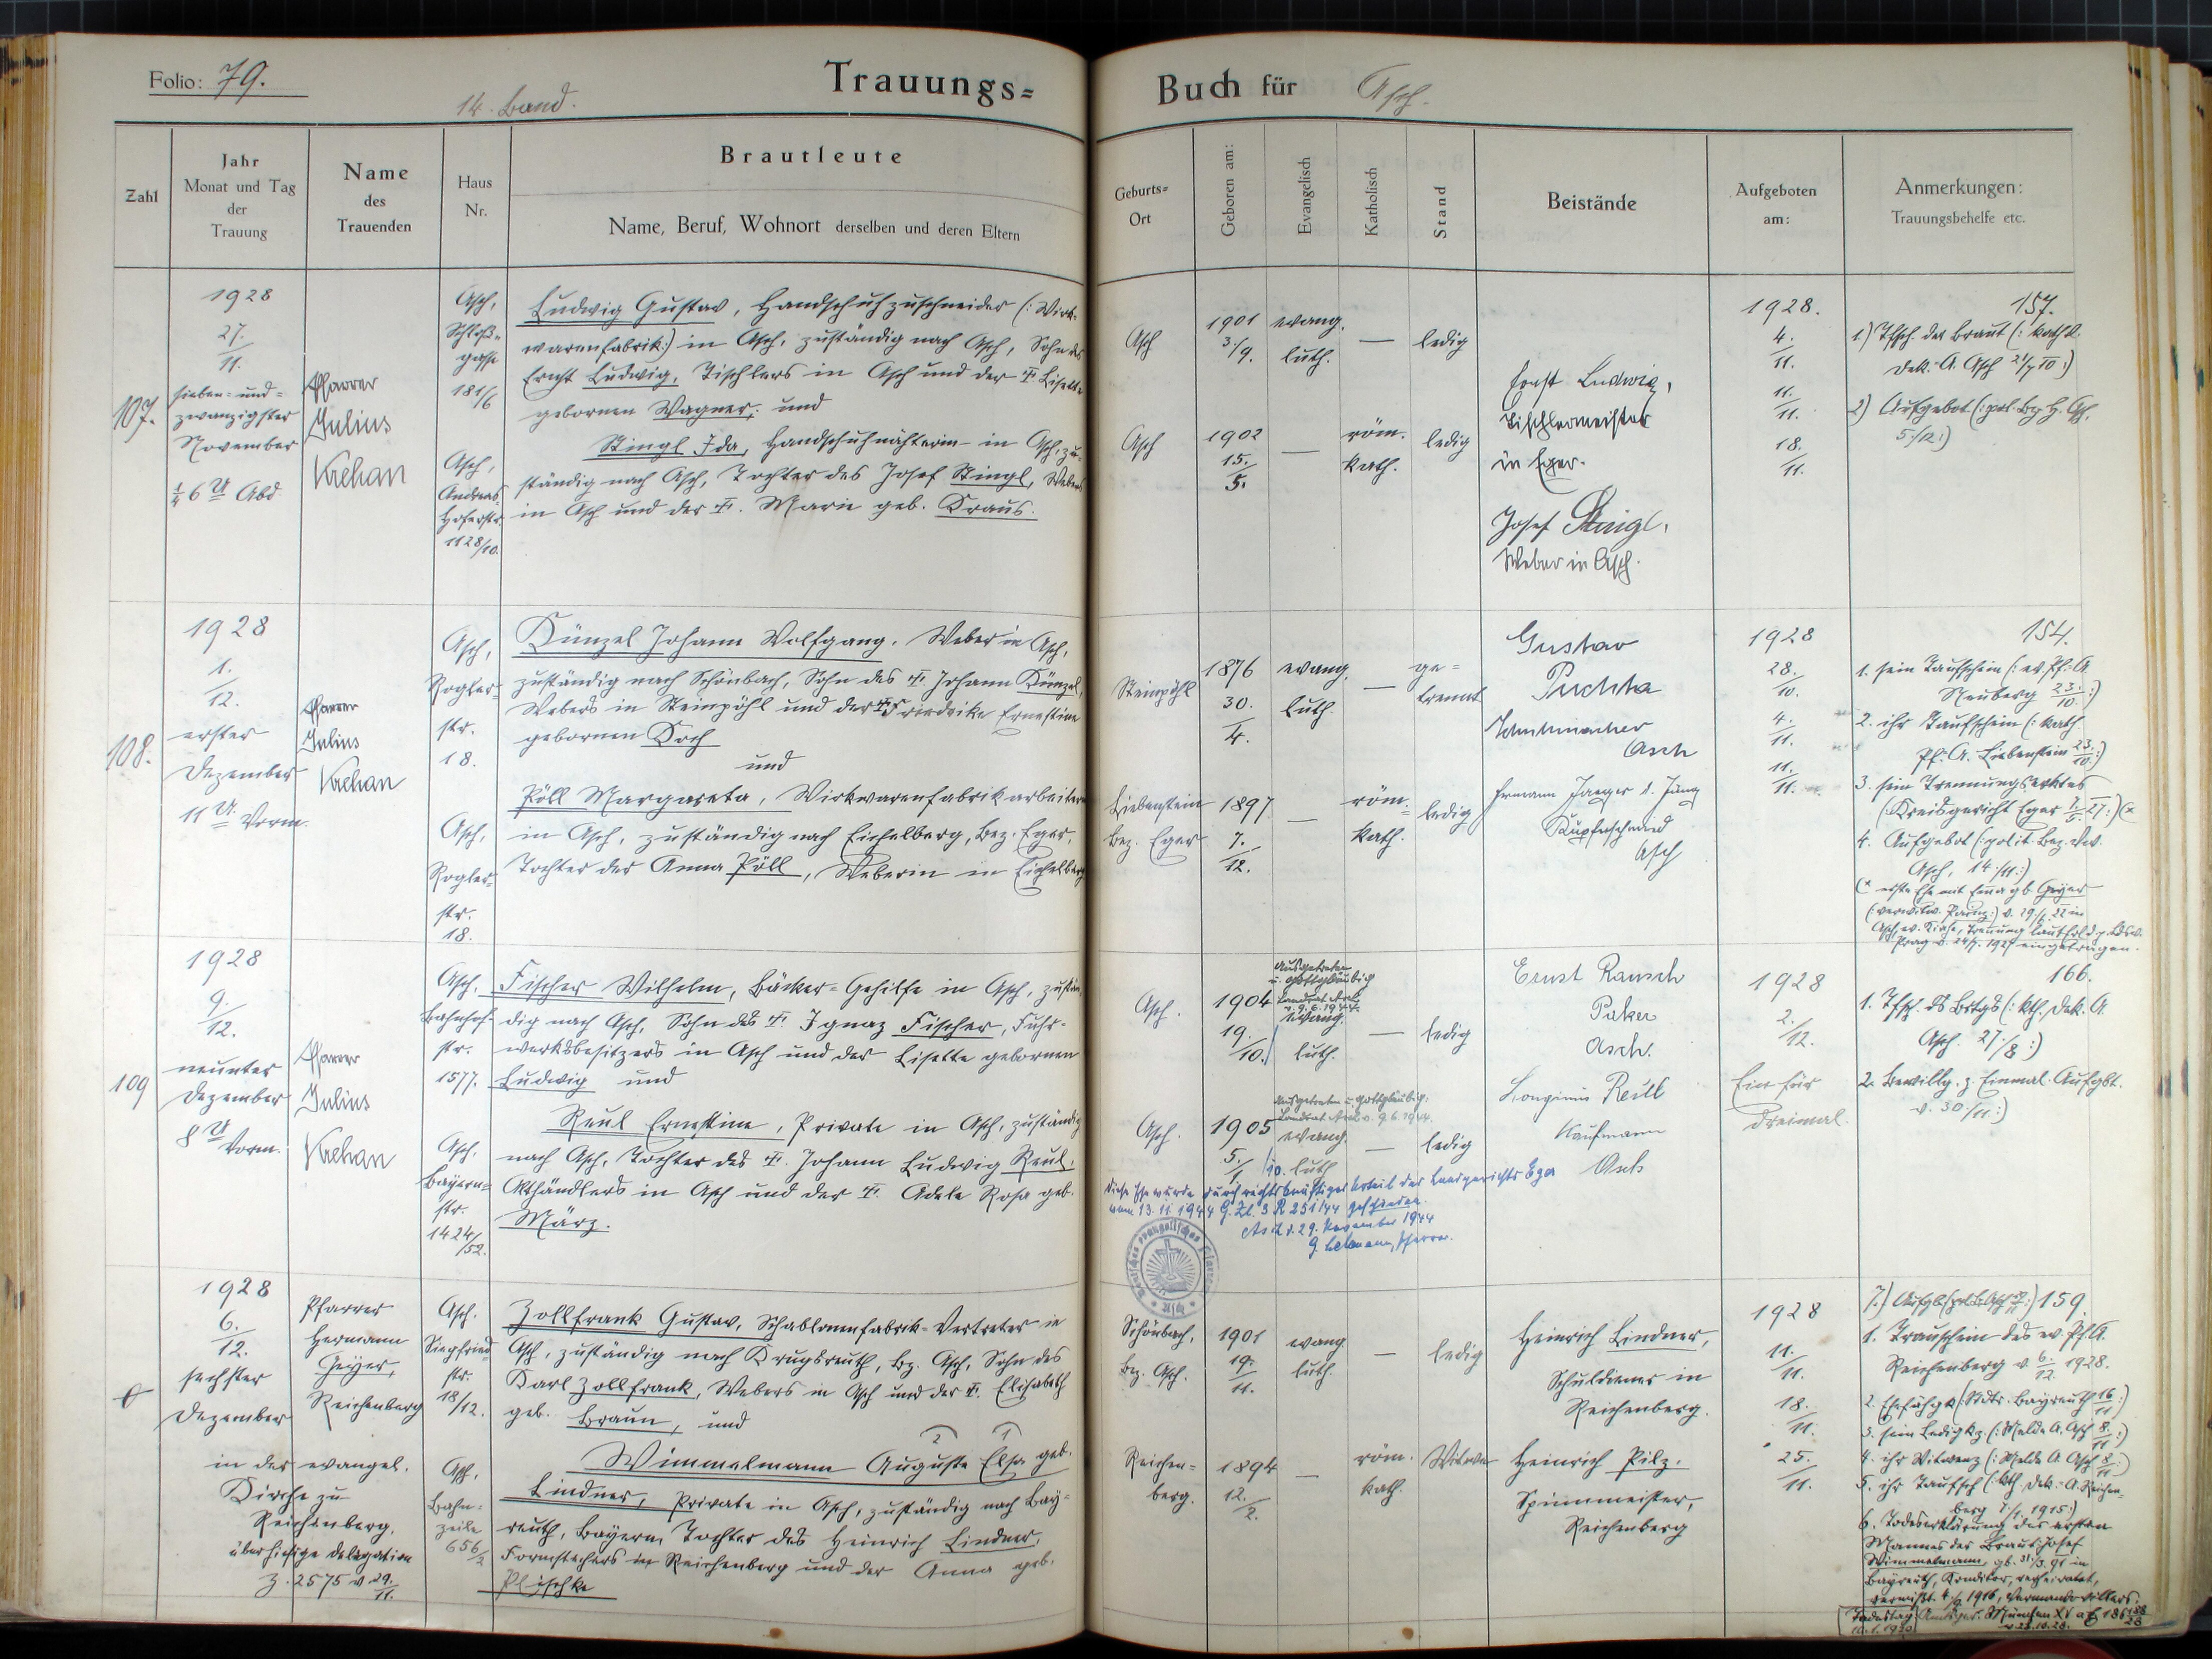 Folio: 79.
14. Band.
Trauungs=
Buch für Asch.
Zahl
Jahr
Monat und Tag
der
Trauung
Name
des
Trauenden
Haus
Nr.
Brautleute
Name, Beruf, Wohnort derselben und deren Eltern
Geburts=
Ort
Geboren am:
Evangelisch
Katholisch
Stand
Beistände
Aufgeboten
am:
Anmerkungen:
Trauungsbehelfe etc.
107.
1928
27.
11.
sieben- und-
zwanzigster
November
¼ 6 U Abd.
Pfarrer
Julius
Krehan
Asch,
Schloß-
gasse
181/6
Ludwig Gustav, Handschuhzuschneider (: Wirk-
warenfabrik:) in Asch, zuständig nach Asch, Sohn des
Ernst Ludwig, Tischlers in Asch und der † Lisette
gebornen Wagner; und
Asch,
Andreas
Hoferstr.
1128/10.
Stingl Ida, Handschuhnähterin in Asch, zu-
ständig nach Asch, Tochter des Josef Stingl, Webers
in Asch und der †. Marie geb. Kraus.
Asch
1901
3./9.
evang.
luth.
—
ledig
Asch
1902
15.
5.
—
röm.
kath.
ledig
Ernst Ludwig,
Tischlermeister
in Eger.
Josef Stingl,
Weber in Asch.
1928.
4.
11.
11.
11.
18.
11.
157.
1.) Tfsch. der Braut (: kathl.
Dek. A. Asch 21/7 10:)
2) Aufgebot (: pol. Bz H. Asch,
5/12:)
108.
1928
1.
12.
erster
Dezember
11 U. Vorm.
Pfarrer
Julius
Krehan
Asch,
Rogler-
str.
18.
Künzel Johann Wolfgang, Weber in Asch,
zuständig nach Schönbach, Sohn des †. Johann Künzel,
Webers in Steinpöhl und der † Friedrike Ernestine
gebornen Koch
und
Asch,
Rogler-
str.
18.
Pöll Margareta, Wirkwarenfabrikarbeiterin
in Asch, zuständig nach Eichelberg, Bez. Eger,
Tochter der Anna Pöll, Weberin in Eichelberg
Steinpöhl
1876
30.
4.
evang.
luth.
—
ge-
trennt
Liebenstein
Bez. Eger
1897
7.
12.
—
röm.
kath.
ledig
Gustav
Puchta
Schuhmacher
Asch
Hermann Jaeger d. Jüng
Kupferschmied
Asch
1928
28.
10.
4.
11.
11.
11.
154.
1. sein Taufschein (: ev. Pf. A.
Neuberg 23./10.:)
2. ihr Taufschein (: kath.
Pf. A. Liebenstein 23./10:)
3. sein Trennungsdektes
(: Kreisgericht Eger 27:) (x
4. Aufgebot (: polit. Bez. Verw.
Asch, 14/11:)
(x erste Ehe mit Emma gb. Geyer
109
1928
9.
12.
neunter
Dezember
8 U Vorm.
Pfarrer
Julius
Krehan
Asch.
Bahnhof-
str.
1577.
Fischer Wilhelm, Bäcker-Gehilfe in Asch, zustän-
dig nach Asch, Sohn des †. Ignaz Fischer, Fuhr-
werksbesitzers in Asch und der Lisette gebornen
Ludwig und
Asch.
Bayern-
str.
1424/52.
Reul Ernestine, Private in Asch, zuständig
nach Asch, Tochter des †. Johann Ludwig Reul,
Althändlers in Asch und der †. Adele Rosa geb.
März.
Asch.
1904
19.
10.
Ausgetreten
u. gottgläubig
Landrat Asch
v. 9.6.1944
evang.
luth.
—
ledig
Asch.
1905
5./10.
Ausgetreten u. gottgläubig:
Landrat Asch v. 9.6.1944.
evang.
luth.
—
ledig
Diese Ehe wurde durch rechtskräftiges Urteil des Landgerichts Eger
vom 13.11.1944 G. Zl. 3 R 251/44 geschieden.
Asch d. 29. November 1944
Pfarrer.
Ernst Rausch
Bäker
Asch.
Longinus Reul
Kaufmann
Asch
1928
2.
12.
Ein für
dreimal.
166.
1. Tfsch. ds Brtgs (: kth. Dek. A.
Asch. 27./8:)
2. Bewillg. z. Einmal. Aufgbt.
v. 30/11:)
1928
6.
12.
sechster
Dezember
in der evangel.
Kirche zu
Reichenberg,
über hiesige Delegation
Z. 2575 v. 29./11.
Pfarrer
Hermann
Geyer,
Reichenberg
Asch.
Siegfried-
str.
18/12.
Zollfrank Gustav, Schablonenfabrik-Vertreter in
Asch, zuständig nach Krugsreuth, Bz. Asch, Sohn des
Karl Zollfrank, Webers in Asch und der †. Elisabeth
geb. Braun, und
Asch,
Bahn-
zeile
656/2
Wimmelmann Auguste Elsa geb.
Lindner, Private in Asch, zuständig nach Bay-
reuth, Bayern, Tochter des Heinrich Lindner,
Formstechers in Reichenberg und der Anna geb.
Plischke
Schönbach,
Bz. Asch.
1901
19.
11.
evang
luth.
—
ledig
Reichen-
berg.
1894
12.
2.
—
röm.
kath.
Witwe
Heinrich Lindner,
Schuldiener in
Reichenberg.
Heinrich Pilz,
Spinnmeister,
Reichenberg
1928
11.
11.
18.
11.
25.
11.
159.
1. Trauschein des ev. Pf. A.
Reichenberg v. 6./12. 1928.
2. Ehefähgk. (: Stdtr. Bayreuth 16/11:)
3. sein Ledigkz. (: Melde A. Asch 8./11:)
4. ihr Witwenz (: Melde A. Asch 8./11:)
5. ihr Taufsch (: kth. Dek.-A. Reichen-
berg 1915:)
6. Todeserklärung des ersten
Mannes der Braut: Josef
Wimmelmann, gb. 31/3. 91 in
Bayreuth, Konditor, verheiratet,